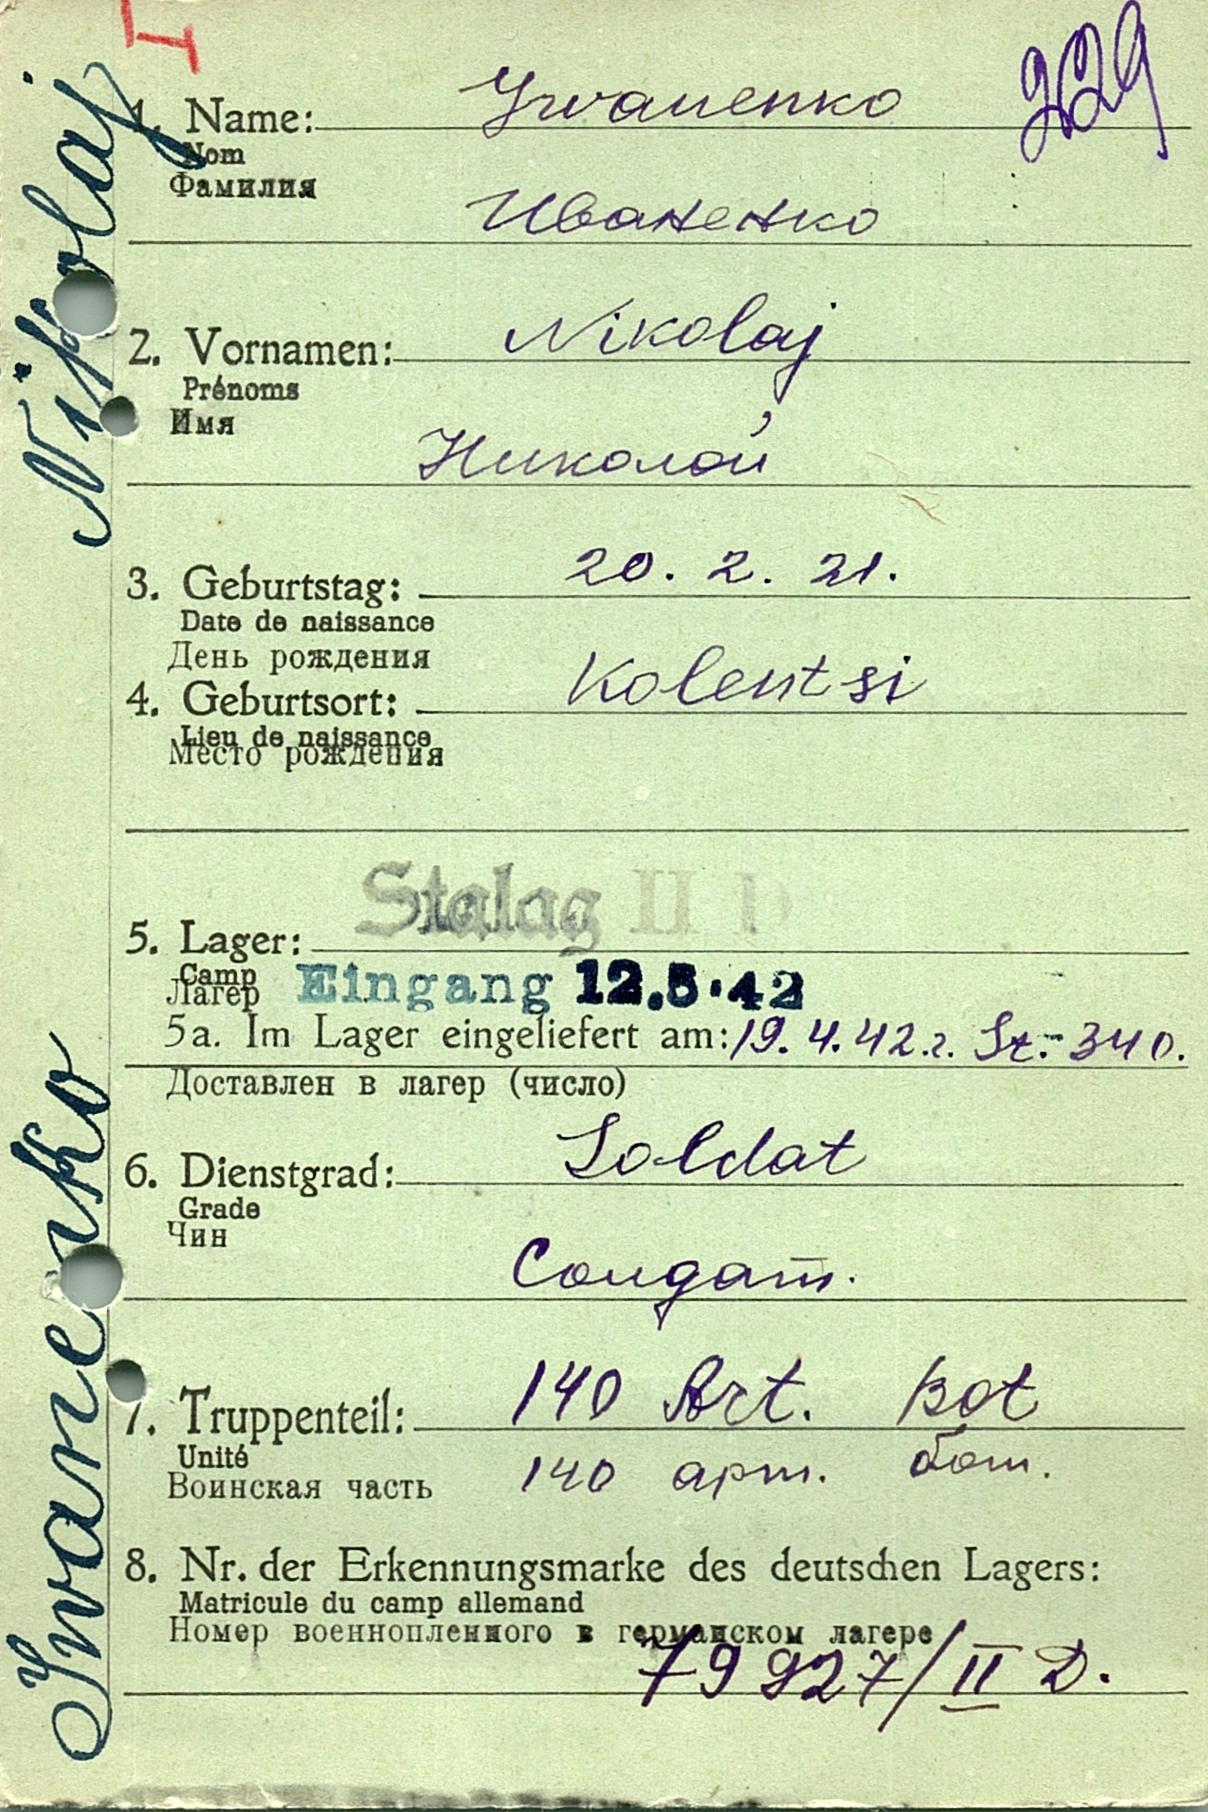 I
329
1. Name: Iwanenko
Nom
Фамилия
Иваненко
2. Vornamen: Nikolaj
Prénoms
Имя
Николай
3. Geburtstag: 20. 2. 21.
Date de naissance
День рождения
4. Geburtsort: Kolentsi
Lieu de naissance
Место рождения
Stalag II D
5. Lager:
Camp
Лагер
Eingang 12.5.42
5a. Im Lager eingeliefert am: 19. 4. 42.г. St.- 340.
Доставлен в лагер (число)
6. Dienstgrad: Soldat
Grade
Чин
Солдат.
7. Truppenteil: 140 Art. Bat
Unité
Воинская часть 140 арт. бат.
8. Nr. der Erkennungsmarke des deutschen Lagers:
Matricule du camp allemand
Номер военнопленного в германском лагере
79927/II D.
Iwanenko Nikolaj